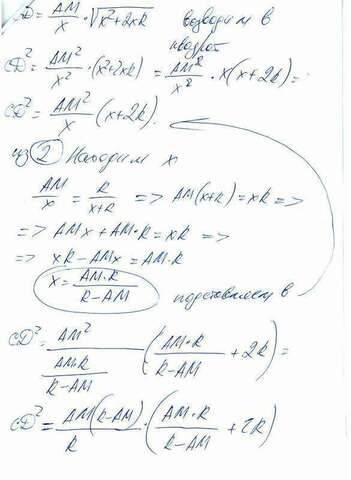 CD = AM/x · √(x²+2xR) возводим в
квадрат
CD² = AM²/x² · (x²+2xR) = AM²/x² · x(x+2R) =
CD² = AM²/x (x+2R).
из (2) Находим x
AM/x = R/(x+R) => AM(x+R) = xR =>
=> AMx + AM·R = xR =>
=> xR - AMx = AM·R
x = AM·R/(R-AM) подставляем в
CD² = AM²/(AM·R/(R-AM)) (AM·R/(R-AM) + 2R) =
CD² = AM(R-AM)/R · (AM·R/(R-AM) + 2R)